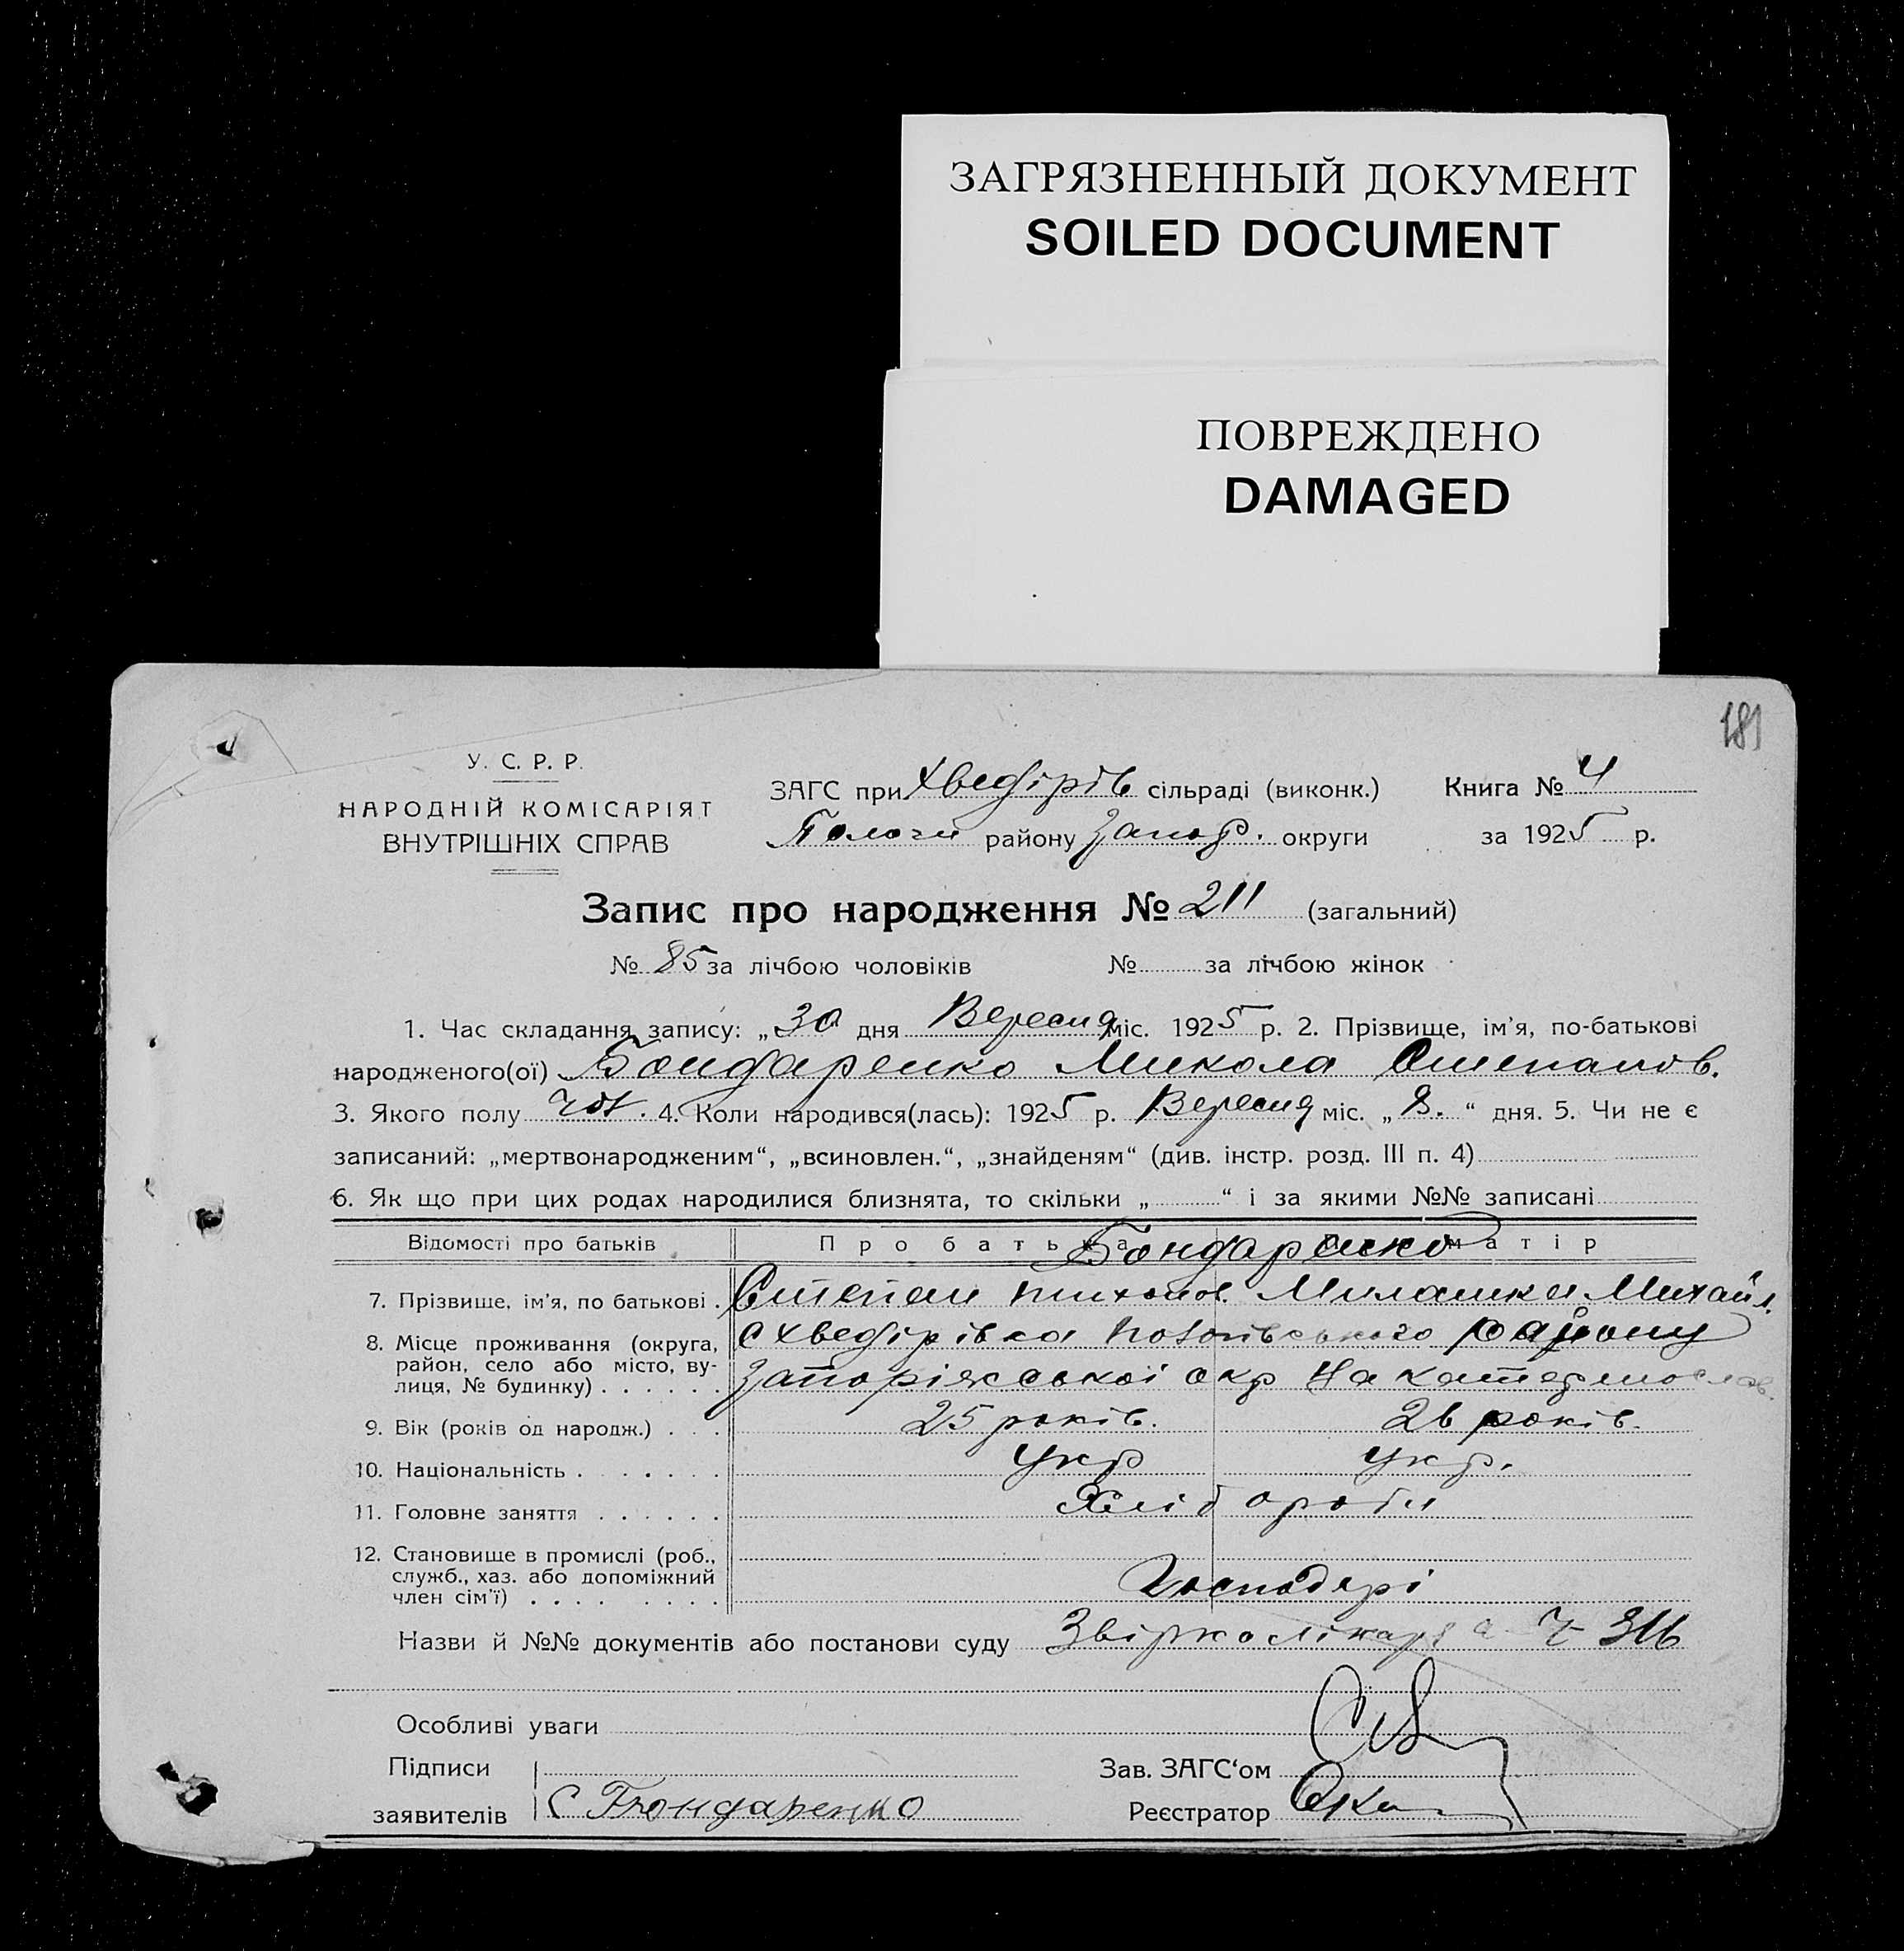 ЗАГРЯЗНЕННЫЙ ДОКУМЕНТ
SOILED DOCUMENT
ПОВРЕЖДЕНО
DAMAGED
181
У. С. Р. Р.
НАРОДНІЙ КОМІСАРІЯТ
ВНУТРІШНІХ СПРАВ
ЗАГС при Хведірів сільраді (виконк.) Книга № 4
Пологи району Запор. округи за 1925 р.
Запис про народження № 211 (загальний)
№ 85 за лічбою чоловіків № за лічбою жінок
1. Час складання запису: „30 дня Вересня міс. 1925 р. 2. Прізвище, ім'я, по-батькові
народженого(ої) Бондаренко Микола Степанов.
3. Якого полу чол. 4. Коли народився(лась): 1925 р. Вересня міс. „8." дня. 5. Чи не є
записаний: „мертвонародженим", „всиновлен.", „знайденям" (див. інстр. розд. III п. 4)
6. Як що при цих родах народилися близнята, то скільки „ " і за якими №№ записані
Відомості про батьків Про батька матір
Бондаренко
7. Прізвище, ім'я, по батькові . Степан Тихонов. Миланка Михайл.
8. Місце проживання (округа, с Хведірівка району
район, село або місто, ву-
лиця, № будинку) . . . . . . Запоріжської окр На Катеринослав.
9. Вік (років од народж.) . . . 25 років. 26 років.
10. Національність . . . . . . Укр Укр.
11. Головне заняття . . . . . . Хлібороби
12. Становище в промислі (роб.,
служб., хаз. або допоміжний
член сім'ї) . . . . . . . . Господарі
Назви й №№ документів або постанови суду 316
Особливі уваги
Підписи Зав. ЗАГС'ом
заявителів С Бондаренко Реєстратор